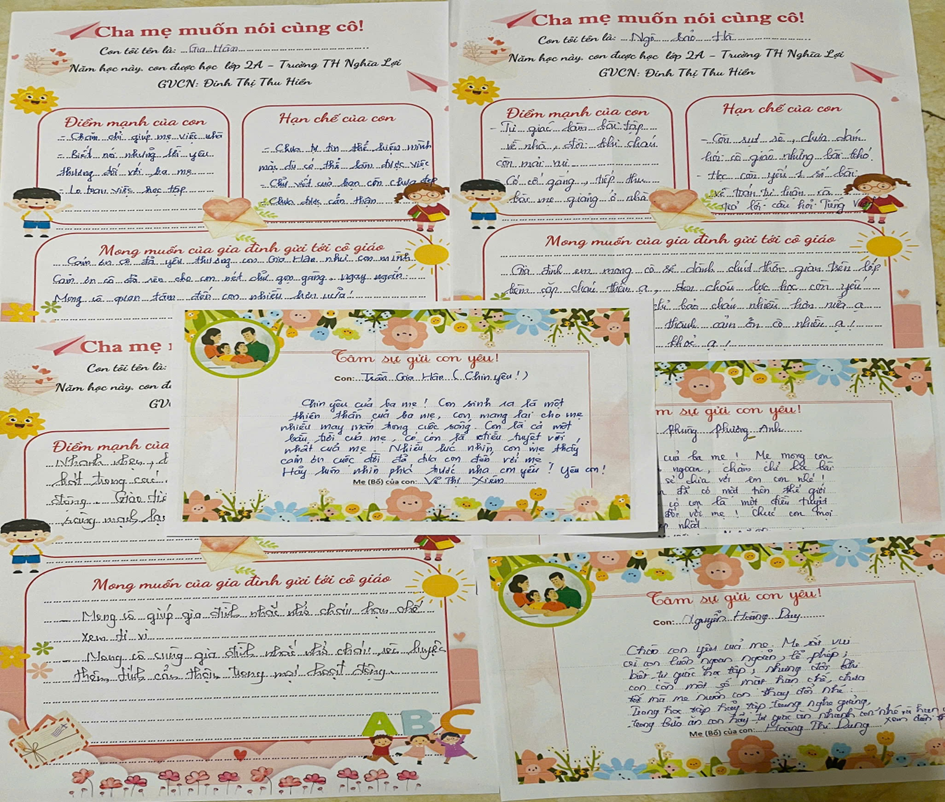 Cha mẹ muốn nói cùng cô!
Con tôi tên là: Gia Hân
Năm học này, con được học lớp 2A – Trường TH Nghĩa Lợi
GVCN: Đinh Thị Thu Hiền
Điểm mạnh của con
- Chăm chỉ giúp mẹ việc nhà
- Biết nói những lời yêu
thương đối với ba mẹ
- Lo trau việc học tập
Hạn chế của con
- Chưa tự tin thể hiện mình
mặc dù có thể làm được việc
- Chữ viết của bạn còn chưa đẹp
- Chưa được cẩn thận
Mong muốn của gia đình gửi tới cô giáo
Cảm ơn cô đã yêu thương con Gia Hân như con mình
Cảm ơn cô đã rèn cho con nét chữ gọn gàng, ngay ngắn
Mong cô quan tâm đến con nhiều hơn nữa!
Cha mẹ muốn nói cùng cô!
Con tôi tên là: Ngô Bảo Hà
Năm học này, con được học lớp 2A – Trường TH Nghĩa Lợi
GVCN: Đinh Thị Thu Hiền
Điểm mạnh của con
- Tự giác làm bài tập
về nhà, đôi khi cháu
còn mải vui
- Có cố gắng, tiếp thu
bài mẹ giảng ở nhà
Hạn chế của con
- Còn sụt sè, chưa dám
hỏi cô giáo những bài khó.
- Học còn yếu
về toán tư thân
trả lời câu hỏi Tiếng Việt
Mong muốn của gia đình gửi tới cô giáo
Gia đình em mong cô sẽ dành chút thời gian trên lớp
kèm cặp cháu thêm ạ. cháu lực học còn yếu
chỉ bảo cháu nhiều hơn nữa ạ
thành cảm ơn cô nhiều ạ!
khỏe ạ!
Cha mẹ
Con tôi tên là:
Năm học này, con đ
GV
Điểm mạnh của
Nhanh nhẹn,
hoạt trong các
Giao tiế
Mong muốn của gia đình gửi tới cô giáo
Mong cô giúp gia đình nhắc nhở cháu hạn chế
xem ti vi
Mong cô cùng gia đình nhắc nhở cháu rèn luyện
thêm tính cẩn thận trong mọi hoạt động.
ABC
Tâm sự gửi con yêu!
Con: Trần Gia Hân (Chin yêu!)
Chin yêu của ba mẹ! Con sinh ra là một
thiên thần của ba mẹ, con mang lại cho mẹ
nhiều may mắn trong cuộc sống. Con là cả một
bầu trời của mẹ, có con là điều tuyệt vời
nhất của mẹ. Nhiều lúc nhìn con mẹ thấy
cảm ơn cuộc đời đã đưa con đến với mẹ
Hãy luôn nhìn phía trước nha em yêu! Yêu con!
Mẹ (Bố) của con: Vũ Thị Xiêm
m sự gửi con yêu!
Phùng Phương Anh
của ba mẹ! Mẹ mong con
ngoan, chăm chỉ học bài
sẻ chia với em con nhé!
đã có mặt trên thế giới
có con là một điều tuyệt
với mẹ! Chúc con mọi
nhất
Tâm sự gửi con yêu!
Con: Nguyễn Hoàng Duy
Chào con yêu của mẹ. Mẹ rất vui
vì con luôn ngoan ngoãn, lễ phép,
biết tự giác học tập, nhưng đôi khi
con còn một số mặt hạn chế, chưa
tốt mà mẹ muốn con thay đổi nhé.
Trong học tập hãy tập trung nghe giảng.
trong bữa ăn con hãy tự giác ăn nhanh con nhé và hạn
xem điện
Mẹ (Bố) của con: Hoàng Thị Dung